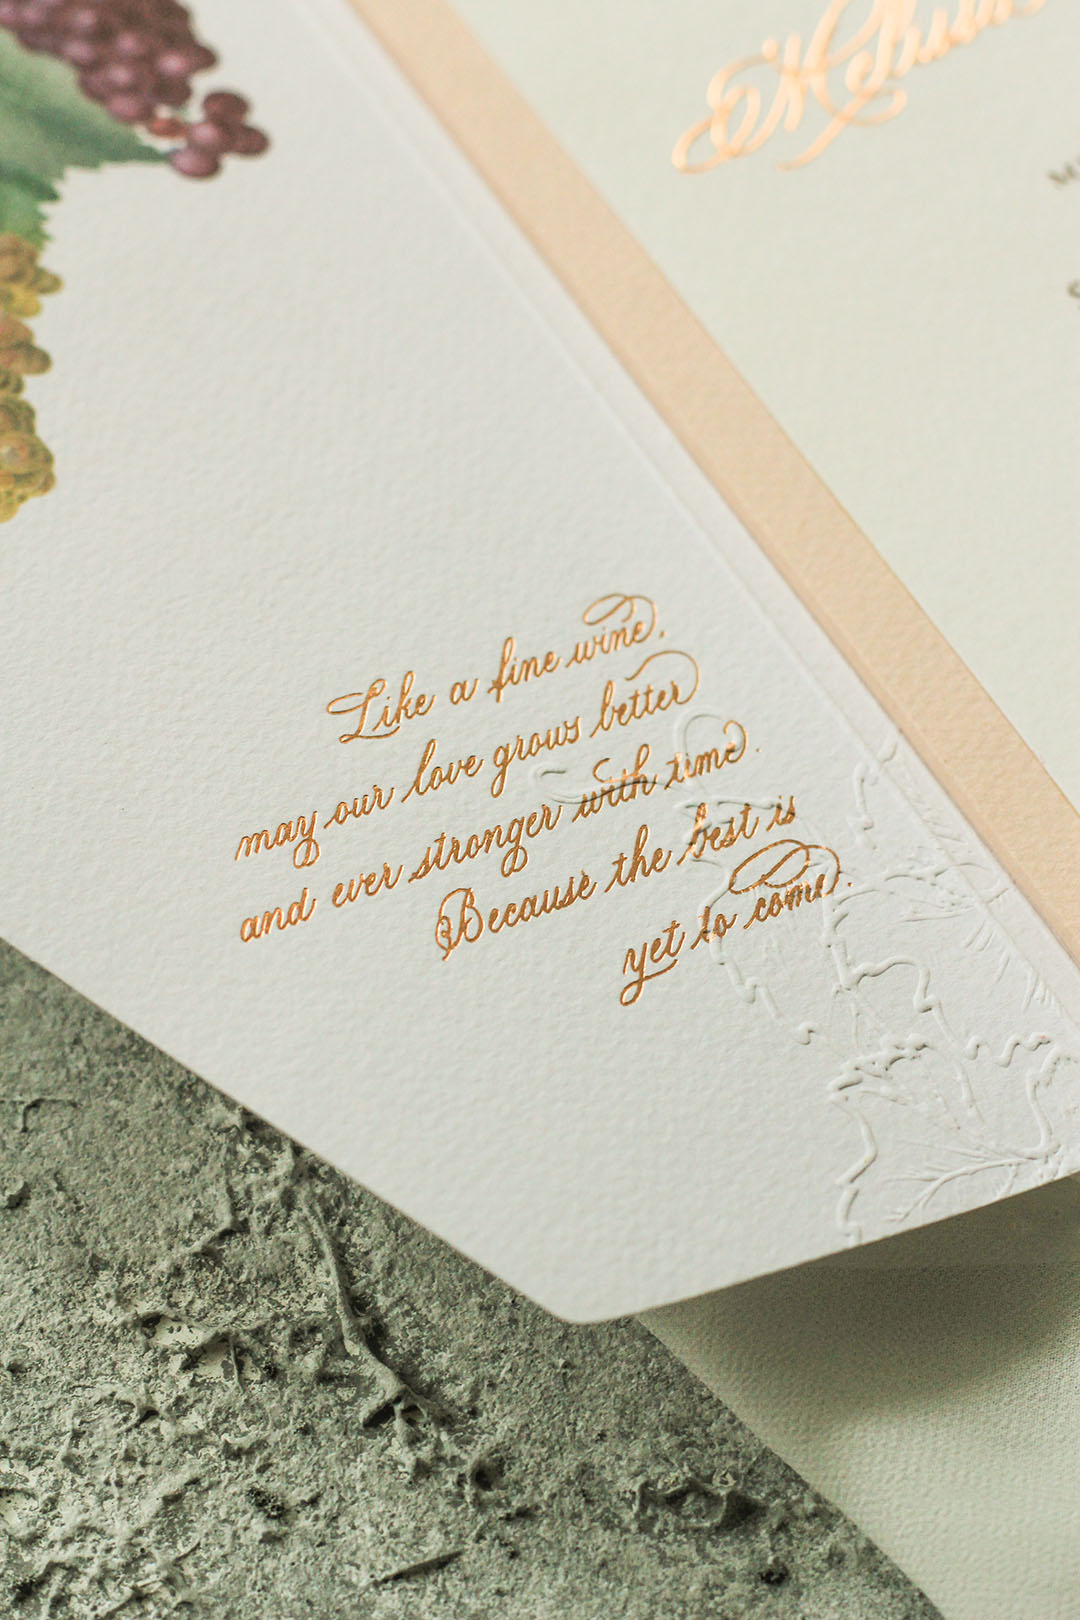 Like a fine wine,
may our love grows better
and ever stronger with time.
Because the best is
yet to come.